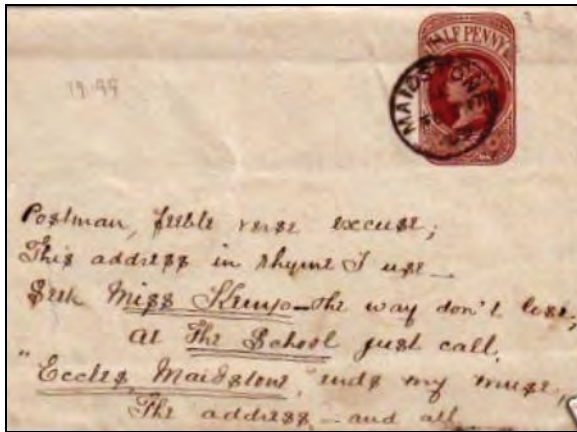 HALF PENNY
MAIDSTONE
19.99
Postman, feeble verse excuse;
This address in rhyme I use —
Seek Miss Kemp — the way don't lose;
At The School just call,
"Eccles, Maidstone," ends my muse,
The address — and all